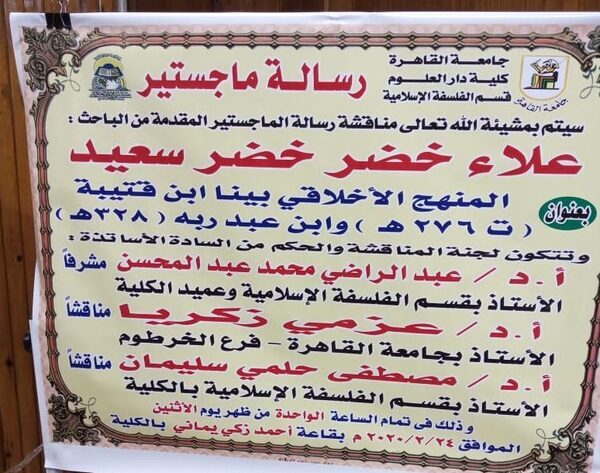 جامعة القاهرة
كلية دار العلوم
قسم الفلسفة الإسلامية
جامعة القاهرة
رسالة ماجستير
سيتم بمشيئة الله تعالى مناقشة رسالة الماجستير المقدمة من الباحث :
علاء خضر خضر سعيد
بعنوان
المنهج الأخلاقي بينا ابن قتيبة
( ت ٢٧٦ هـ ) وابن عبد ربه ( ٣٢٨هـ )
وتتكون لجنة المناقشة والحكم من السادة الأساتذة :
أ . د / عبد الراضي محمد عبد المحسن مشرفاً
الأستاذ بقسم الفلسفة الإسلامية وعميد الكلية
أ . د / عزمي زكريا مناقشاً
الأستاذ بجامعة القاهرة - فرع الخرطوم
أ . د / مصطفى حلمي سليمان مناقشاً
الأستاذ بقسم الفلسفة الإسلامية بالكلية
و ذلك فى تمام الساعة الواحدة من ظهر يوم الأثنين
الموافق ٢٠٢٠/٢/٢٤ م بقاعة أحمد زكي يماني بالكلية